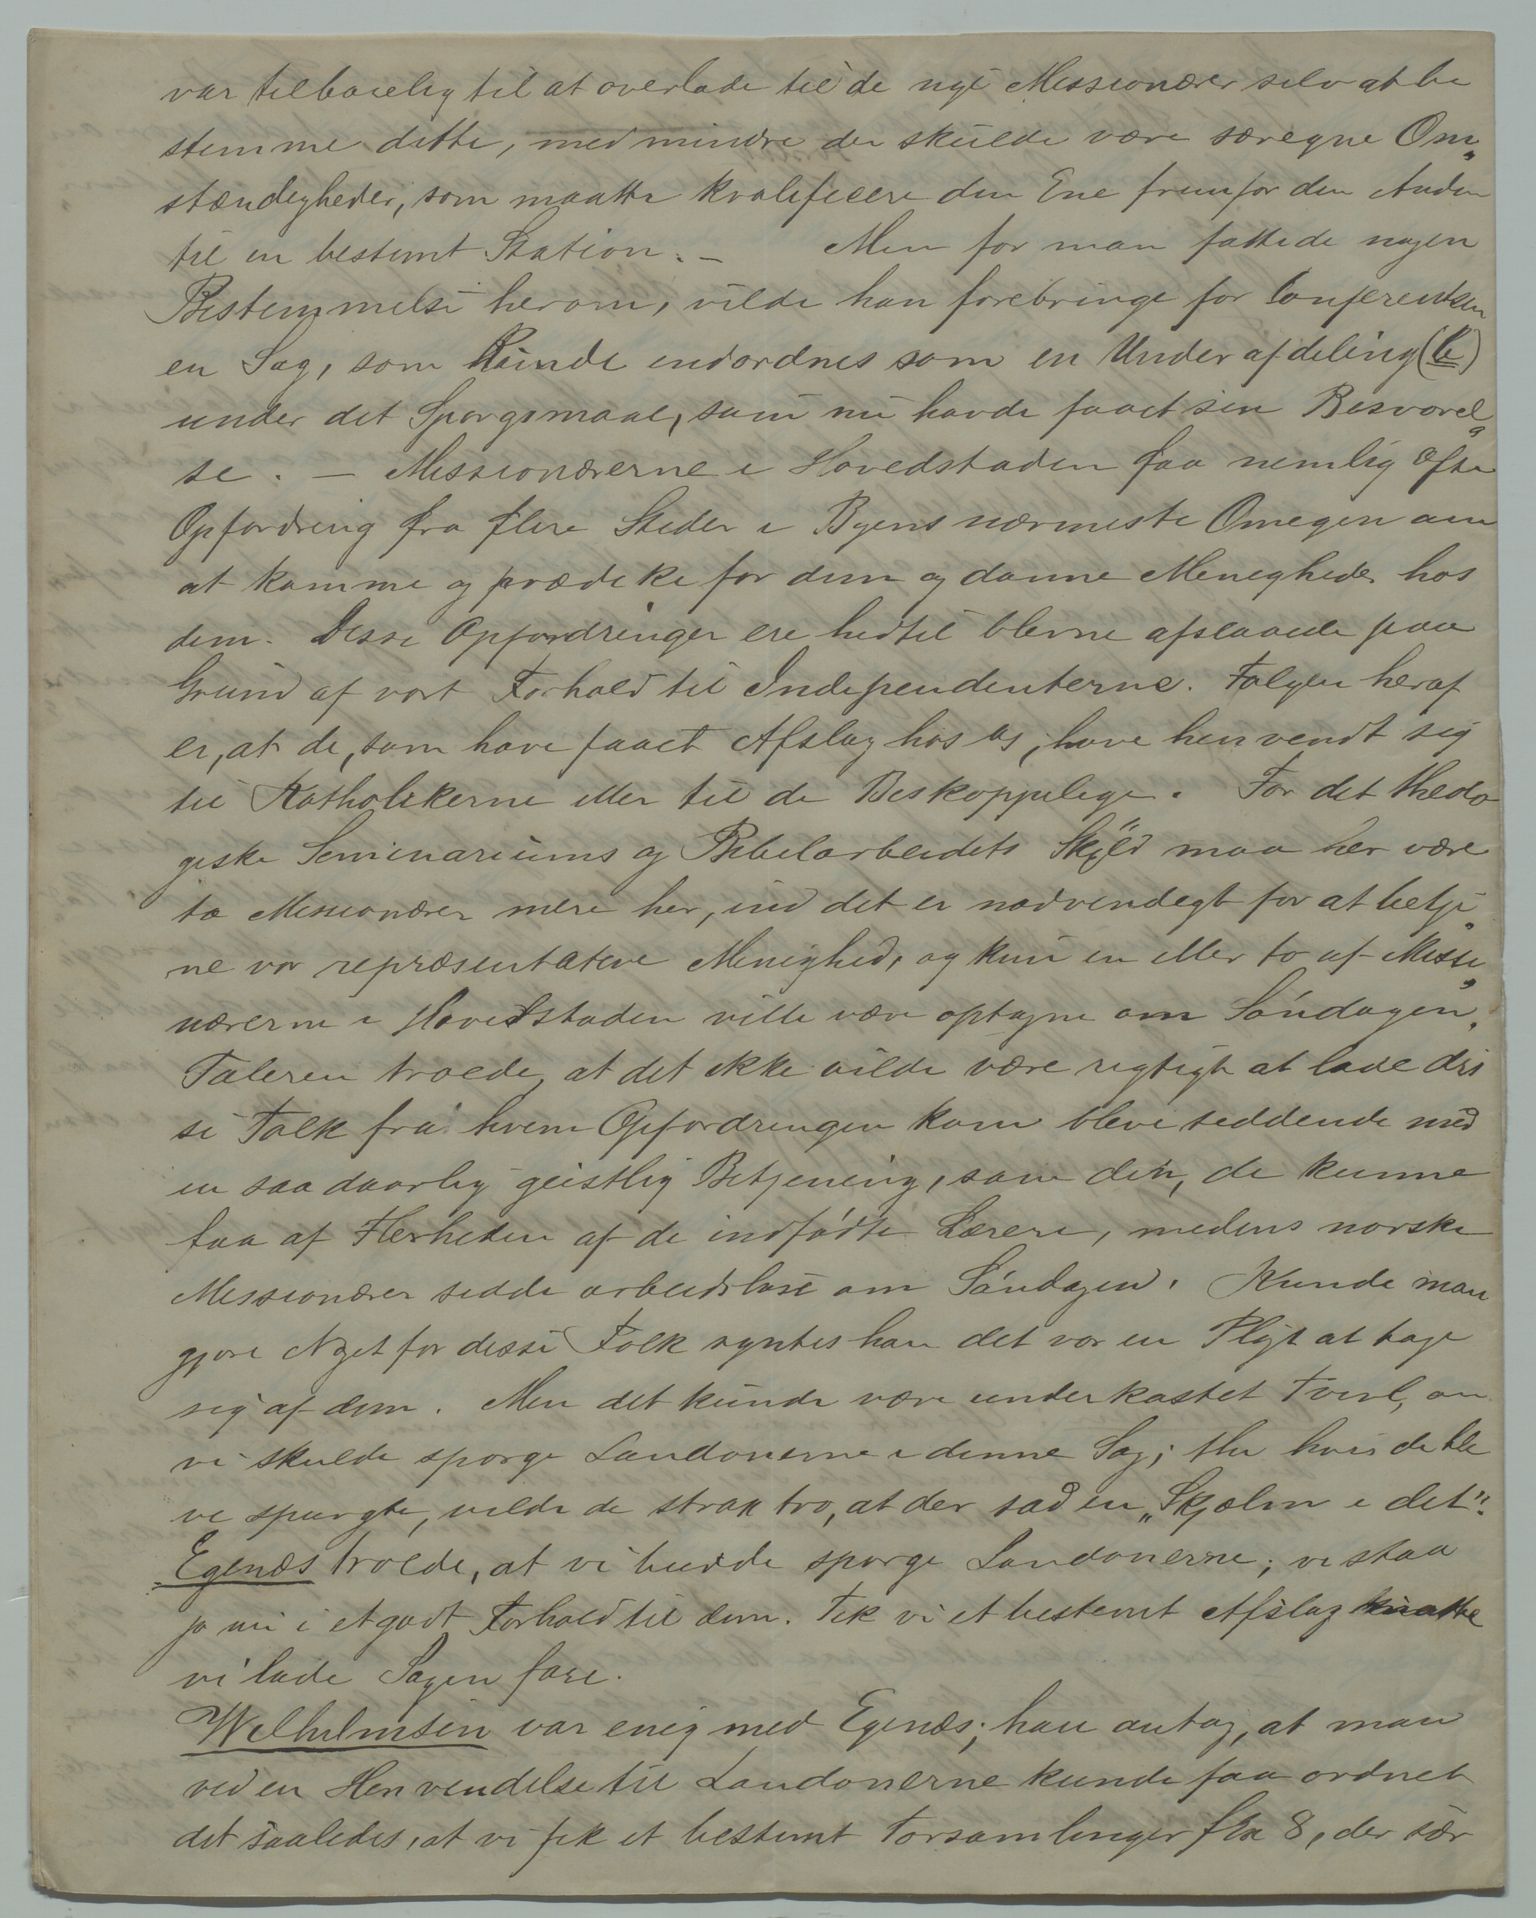 var tilbøielig til at overlade til de nye Missionærer selv at be
stemme dette, med mindre der skulde være særegne Om„
stændigheder, som maatte kvalificere den Ene fremfor den Anden
til en bestemt Station. – Men før man fattede nogen
Bestemmelse herom, vilde han forebringe for Conferentsen
en Sag, som kunde indordnes som en Underafdeling (b)
under det Spørgsmaal, som nu havde faaet sin Besvarel„
se. – Missionærerne i Hovedstaden faa nemlig ofte
Opfordring fra flere Steder i Byens nærmeste Omegen om
at komme og prædike for dem og danne Menigheder hos
dem. Disse Opfordringer ere hidtil blevne afslaaede paa
Grund af vort Forhold til Independenterne. Følgen heraf
er, at de, som have faaet Afslag hos os, have henvendt sig
til Katholikerne eller til de Biskoppelige. For det theolo
giske Seminariums og Bibelarbeidets Skyld maa her være
to Missionærer mere her, end det er nødvendigt for at betje„
ne vor repræsentative Menighed, og kun en eller to af Missi„
nærerne i Hovedstaden ville være optagne om Søndagen.
Taleren troede, at det ikke vilde være rigtigt at lade dis
se Folk fra hvem Opfordringen kom blive siddende med
en saa daarlig geistlig Betjening, som den, de kunne
faa af Flerheden af de indfødte Lærere, medens norske
Missionærer sidde arbeidsløse om Søndagen. Kunde man
gjøre Noget for disse Folk syntes han det var en Pligt at tage
sig af dem. Men det kunde være underkastet Tvivl, om
vi skulde spørge Londonerne i denne Sag; thi hvis de ble
ve spurgte, vilde de strax tro, at der sad en „Skjælm i det”.
Egenæs troede, at vi burde spørge Londonerne; vi staa
jo nu i et godt Forhold til dem. Fik vi et bestemt Afslag maatte
vi lade Sagen fare.
Wilhelmsen var enig med Egenæs; han antog, at man
ved en Henvendelse til Londonerne kunde faa ordnet
det saaledes, at vi fik et bestemt Forsamlinger f Ex 8, der sør